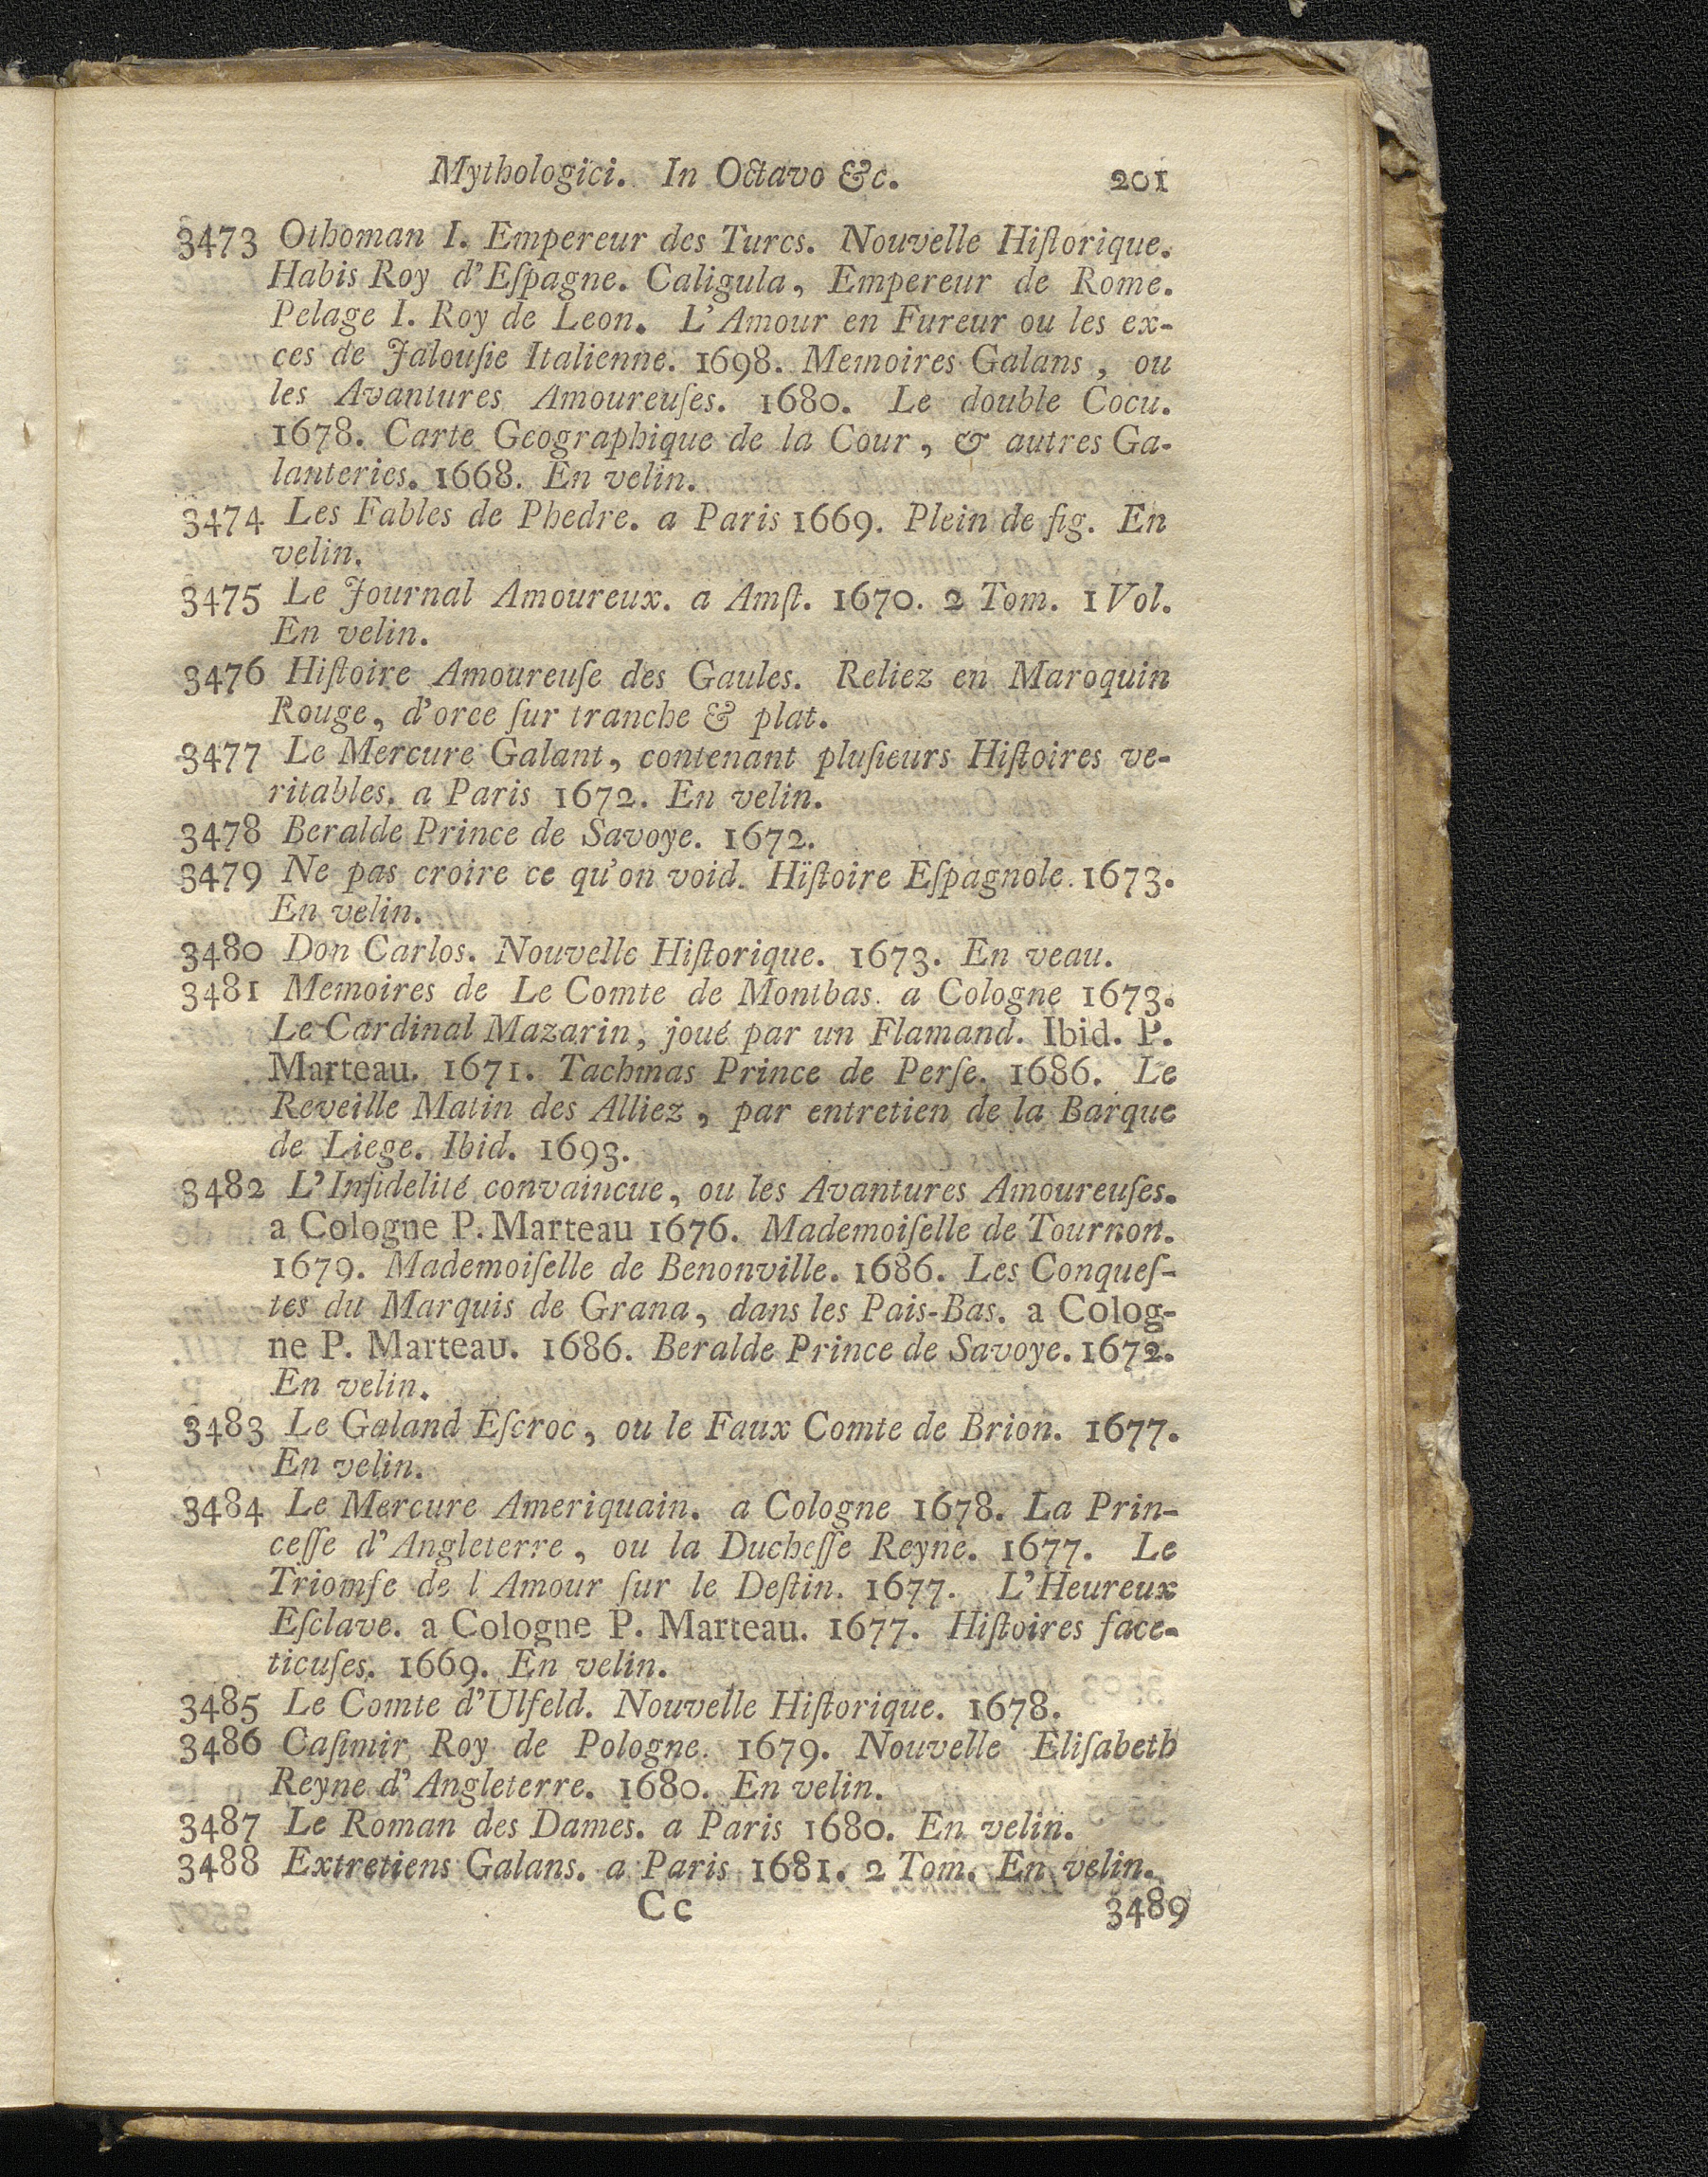 Mythologici. In Octavo &c. 201
3473 Othoman I. Empereur des Turcs. Nouvelle Hiſtorique.
Habis Roy d'Eſpagne. Caligula, Empereur de Rome.
Pelage I. Roy de Leon. L'Amour en Fureur ou les ex-
ces de Jalouſie Italienne. 1698. Memoires Galans, ou
les Avantures Amoureuſes. 1680. Le double Cocu.
1678. Carte Geographique de la Cour, & autres Ga-
lanteries. 1668. En velin.
3474 Les Fables de Phedre. a Paris 1669. Plein de fig. En
velin.
3475 Le Journal Amoureux. a Amſt. 1670. 2 Tom. 1 Vol.
En velin.
3476 Hiſtoire Amoureuſe des Gaules. Reliez en Maroquin
Rouge, d'orce ſur tranche & plat.
3477 Le Mercure Galant, contenant pluſieurs Hiſtoires ve-
ritables. a Paris 1672. En velin.
3478 Beralde Prince de Savoye. 1672.
3479 Ne pas croire ce qu'on void. Hïſtoire Eſpagnole. 1673.
En velin.
3480 Don Carlos. Nouvelle Hiſtorique. 1673. En veau.
3481 Memoires de Le Comte de Montbas. a Cologne 1673.
Le Cardinal Mazarin, joué par un Flamand. Ibid. P.
Marteau. 1671. Tachmas Prince de Perſe. 1686. Le
Reveille Matin des Alliez, par entretien de la Barque
de Liege. Ibid. 1693.
3482 L'Infidelité convaincue, ou les Avantures Amoureuſes.
a Cologne P. Marteau 1676. Mademoiſelle de Tournon.
1679. Mademoiſelle de Benonville. 1686. Les Conqueſ-
tes du Marquis de Grana, dans les Pais-Bas. a Colog-
ne P. Marteau. 1686. Beralde Prince de Savoye. 1672.
En velin.
3483 Le Galand Eſcroc, ou le Faux Comte de Brion. 1677.
En velin.
3484 Le Mercure Ameriquain. a Cologne 1678. La Prin-
ceſſe d'Angleterre, ou la Ducheſſe Reyne. 1677. Le
Triomfe de l Amour ſur le Deſtin. 1677. L'Heureux
Eſclave. a Cologne P. Marteau. 1677. Hiſtoires face-
ticuſes. 1669. En velin.
3485 Le Comte d'Ulfeld. Nouvelle Hiſtorique. 1678.
3486 Caſimir Roy de Pologne. 1679. Nouvelle Eliſabeth
Reyne d'Angleterre. 1680. En velin.
3487 Le Roman des Dames. a Paris 1680. En velin.
3488 Extretiens Galans. a Paris 1681. 2 Tom. En velin.
Cc 3489